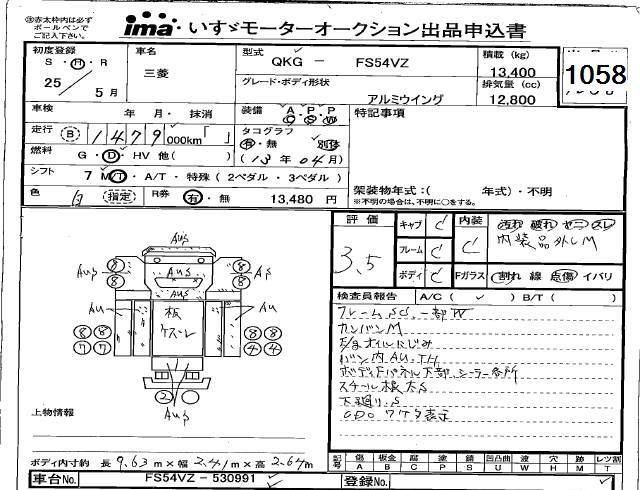 ㊟赤太枠内は必ず
ボールペンで
ご記入下さい。
ima いすゞモーターオークション出品申込書
初度登録
S・H・R
25 / 5月
車名
三菱
型式
QKG - FS54VZ
グレード・ボディ形状
アルミウイング
積載 (kg)
13,400
排気量 (cc)
12,800
1058
車検 年 月・ 抹消
装備 A P P
C S W
特記事項
走行 B 1479 000km「 」
タコグラフ
有・無 別体
(13年04月)
燃料 G・D・HV 他( )
シフト 7 MT・A/T・特殊(2ペダル・3ペダル)
色 白 (指定)
R券 有・無 13,480 円
架装物年式:( 年式)・不明
※不明の場合は、不明に○をする。
評価
3.5
キャブ C
フレーム C
ボディ C
内装 C
汚れ 破れ セニ スレ
内装品外しM
Fガラス 割れ 線 点傷 イバリ
検査員報告 A/C( ✓ ) B/T( )
フレームSC.一部W
カンバンM
E/gオイルにじみ
バン内AU.TH
ボディFパネル下部シーラー各所
スチール根太S
下廻り.S
AuS
8 8 8 8
AuS AuS AS
Au Au
板
8 8 8 8
7 7 4 4
2
AuS
上物情報
ボディ内寸約 長 9.63 m×幅 2.41 m×高 2.64 m
記号 傷 板金 腐 塗 錆 凹凸曲 波 穴 跡 レツ割
A B C P S U W H M T
車台No. FS54VZ - 530991
登録No.